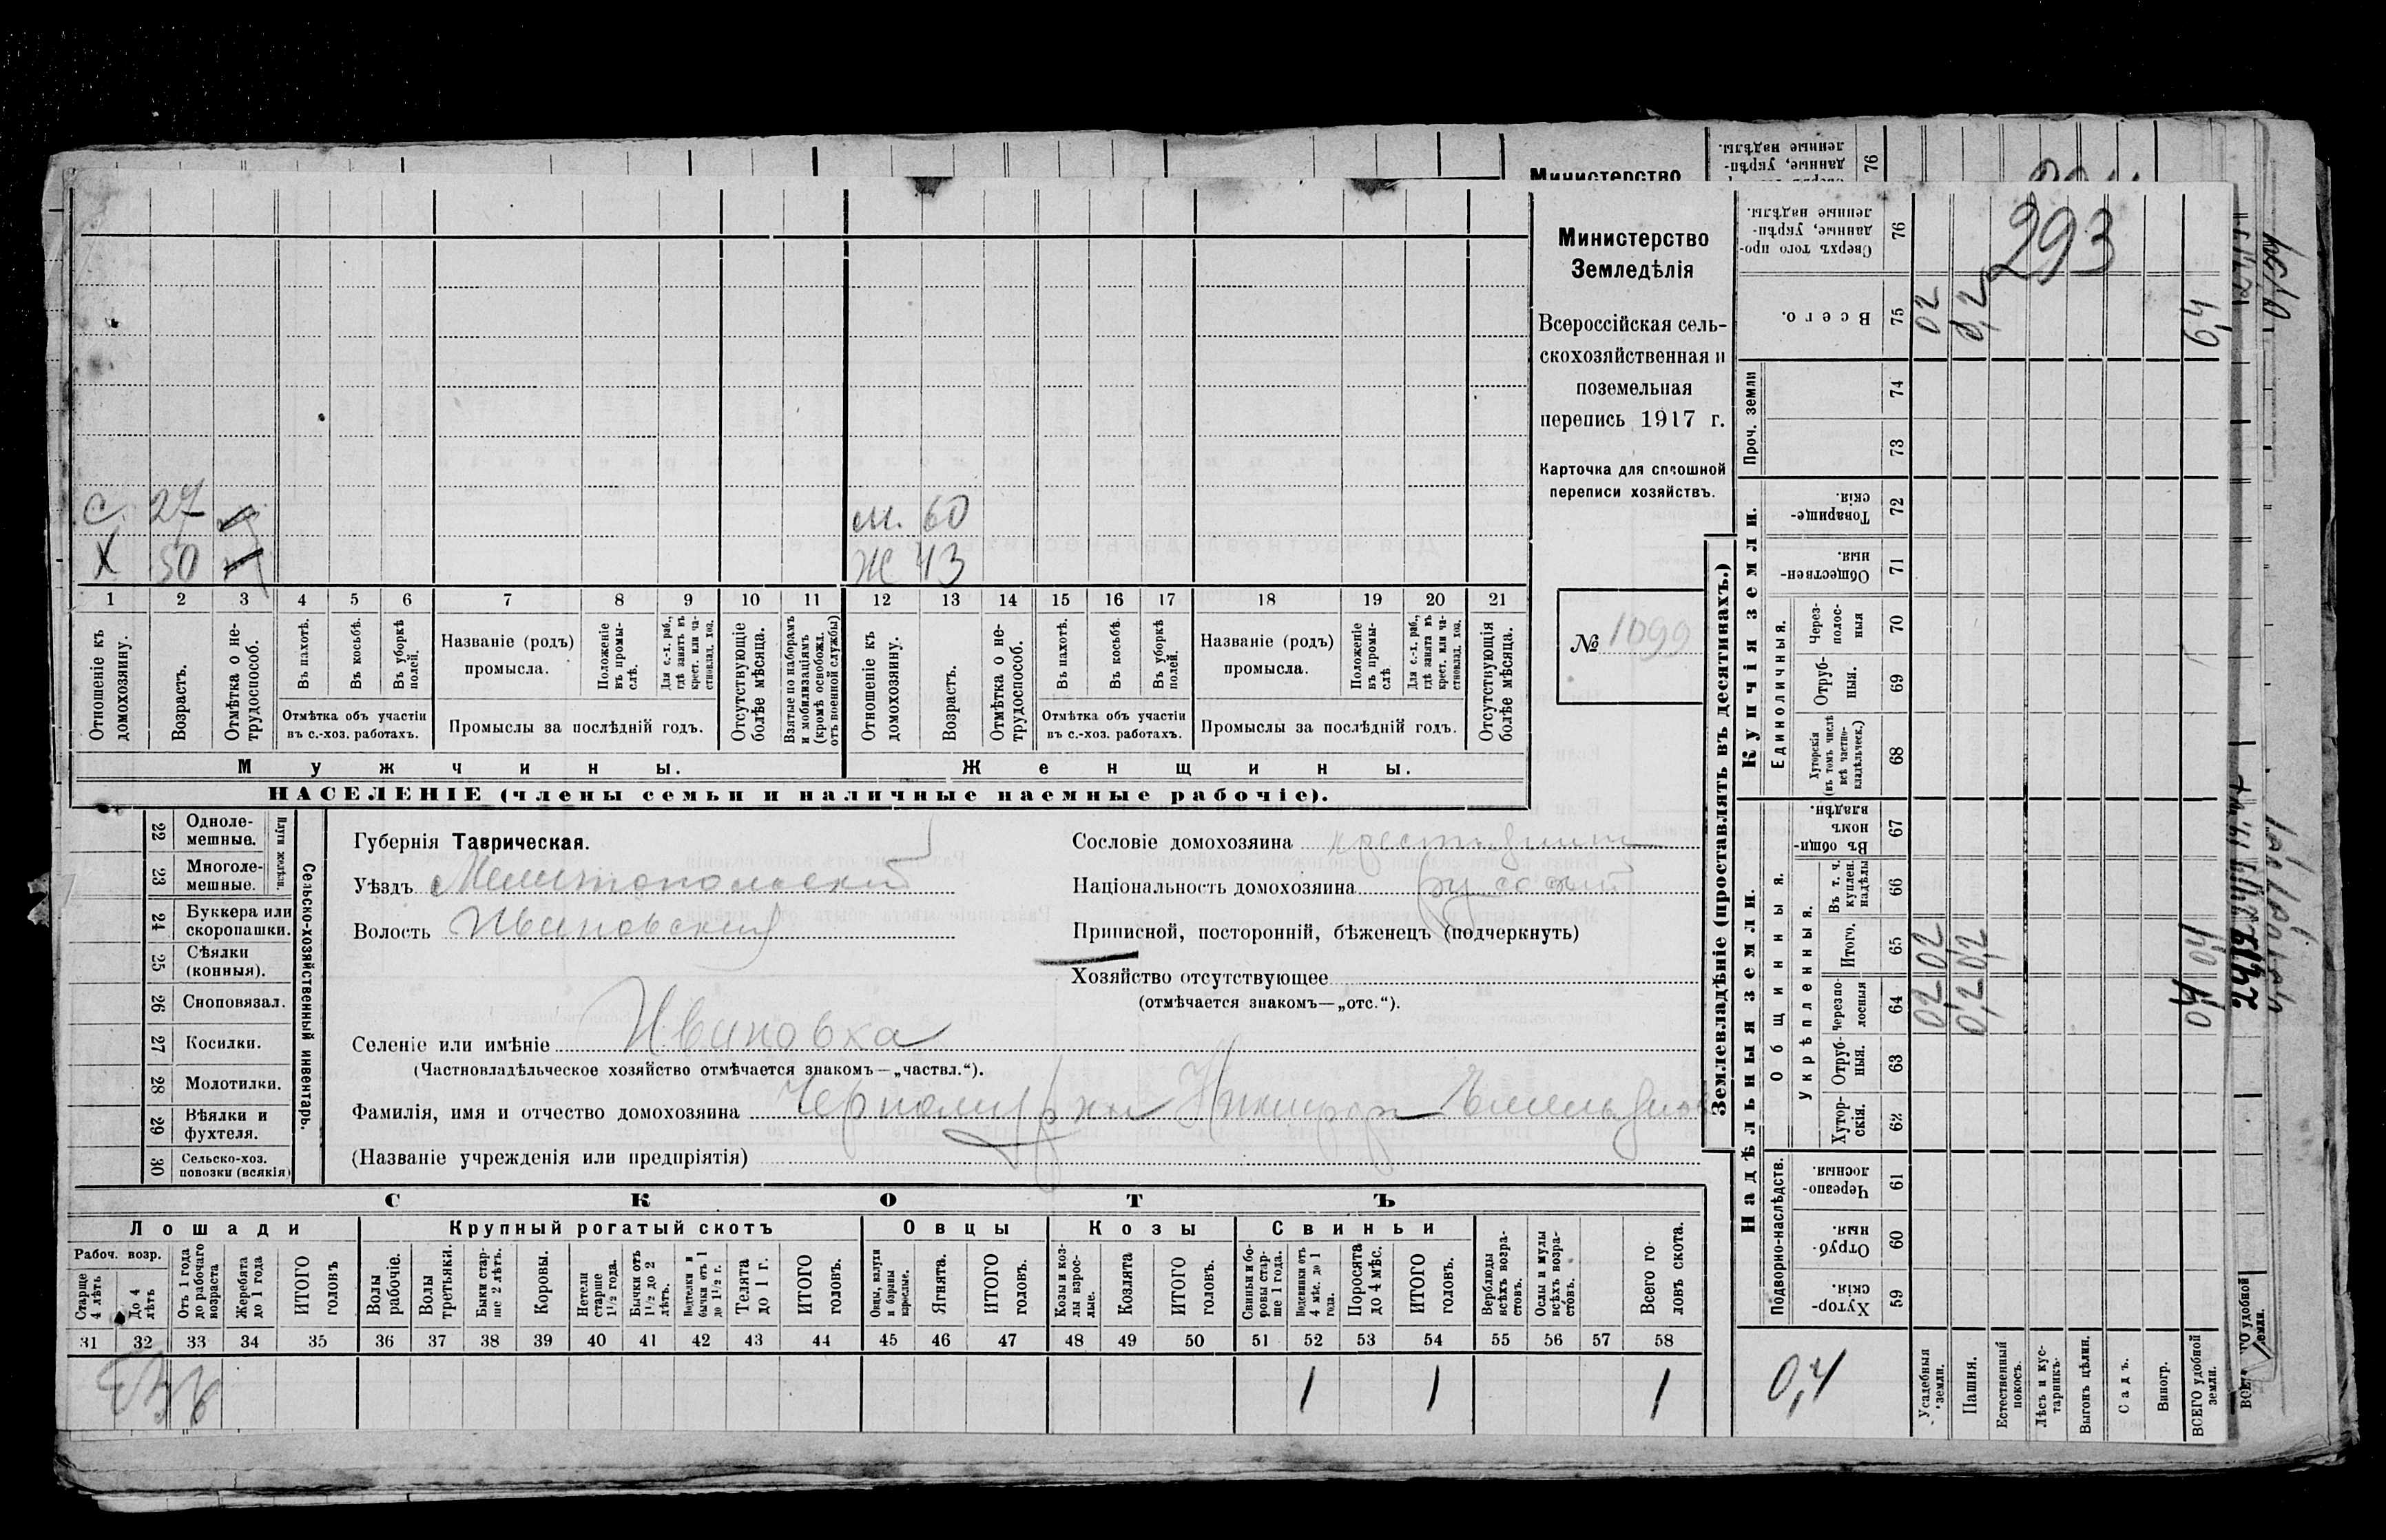 Министерство
293
Министерство
Земледѣлія
Всероссійская сель-
скохозяйственная и
поземельная
перепись 1917 г.
Карточка для сплошной
переписи хозяйствъ.
№ 1099
С. 27
Х 50
м. 60
Ж 43
1 2 3 4 5 6 7 8 9 10 11 12 13 14 15 16 17 18 19 20 21
Отношеніе къ домохозяину.
Возрастъ.
Отмѣтка о не-трудоспособ.
Въ пахотѣ.
Въ косьбѣ.
Въ уборкѣ полей.
Отмѣтка объ участіи
въ с.-хоз. работахъ.
Названіе (родъ)
промысла.
Положеніе въ промы-слѣ.
Для с.-х. раб., гдѣ занятъ въ крест. или ча-стновлад. хоз.
Промыслы за послѣдній годъ.
Отсутствующіе болѣе мѣсяца.
Взятые по наборамъ и мобилизаціямъ (кромѣ освобожд. отъ военной службы)
Отношеніе къ домохозяину.
Возрастъ.
Отмѣтка о не-трудоспособ.
Въ пахотѣ.
Въ косьбѣ.
Въ уборкѣ полей.
Отмѣтка объ участіи
въ с.-хоз. работахъ.
Названіе (родъ)
промысла.
Положеніе въ промы-слѣ
Для с.-х. раб., гдѣ занята въ крест. или ча-стновлад. хоз.
Промыслы за послѣдній годъ.
Отсутствующія болѣе мѣсяца.
Мужчины.
Женщины.
НАСЕЛЕНІЕ (члены семьи и наличные наемные рабочіе).
22 Одноле-мешные.
23 Многоле-мешные.
Плуги желѣзн.
24 Буккера или скоропашки.
25 Сѣялки (конныя).
26 Сноповязал.
27 Косилки.
28 Молотилки.
29 Вѣялки и фухтеля.
30 Сельско-хоз. повозки (всякія)
Сельско-хозяйственный инвентарь.
Губернія Таврическая.
Уѣздъ Мелитопольскій
Волость Ивановская
Сословіе домохозяина крестьянинъ
Національность домохозяина русский
Приписной, посторонній, бѣженецъ (подчеркнуть)
Хозяйство отсутствующее
(отмѣчается знакомъ—„отс.“).
Селеніе или имѣніе Ивановка
(Частновладѣльческое хозяйство отмѣчается знакомъ—„частвл.“).
Фамилія, имя и отчество домохозяина
(Названіе учрежденія или предпріятія)
СКОТЪ
Лошади
Крупный рогатый скотъ
Овцы
Козы
Свиньи
Рабоч. возр.
Старше 4 лѣтъ
До 4 лѣтъ
Отъ 1 года до рабочаго возраста
Жеребята до 1 года
ИТОГО головъ
Волы рабочіе.
Волы третьяки.
Быки стар-ше 2 лѣтъ.
Коровы.
Нетели старше 1½ года.
Бычки отъ 1½ до 2 лѣтъ.
Подтелки и бычки отъ 1 до 1½ г.
Телята до 1 г.
ИТОГО головъ.
Овцы, валухи и бараны взрослые.
Ягнята.
ИТОГО головъ.
Козы и коз-лы взрос-лые.
Козлята
ИТОГО головъ.
Свиньи и бо-ровы стар-ше 1 года.
Подсвинки отъ 4 мѣс. до 1 года.
Поросята до 4 мѣс.
ИТОГО головъ.
Верблюды всѣхъ возра-стовъ.
Ослы и мулы всѣхъ возра-стовъ.
Всего го-ловъ скота.
31 32 33 34 35 36 37 38 39 40 41 42 43 44 45 46 47 48 49 50 51 52 53 54 55 56 57 58
1 1 1
Землевладѣніе (проставлять въ десятинахъ.)
Надѣльныя земли.
Купчія земли.
Подворно-наслѣдств.
Общинныя.
Укрѣпленныя.
Единоличныя.
Проч. земли
Сверхъ того про-данные, укрѣп-ленные надѣлы. 76
Всего. 75
74
73
Товарище-скія. 72
Обществен-ныя. 71
Через-полос-ныя 70
Отруб-ныя. 69
Хуторскія (въ томъ числѣ всѣ частно-владѣльческ.) 68
Въ общин-номъ владѣн. 67
Въ т. ч. куплен. надѣлы 66
Итого. 65
Черезпо-лосныя 64
Отруб-ныя. 63
Хутор-скія. 62
Черезпо-лосныя 61
Отруб-ныя. 60
Хутор-скія. 59
02 0,2
02 02
0,2 0,2
0,4
Усадебныя земли.
Пашня.
Естественный покосъ.
Лѣсъ и кус-тарникъ.
Выгонъ цѣлин.
Садъ.
Виногр.
ВСЕГО удобной земли.